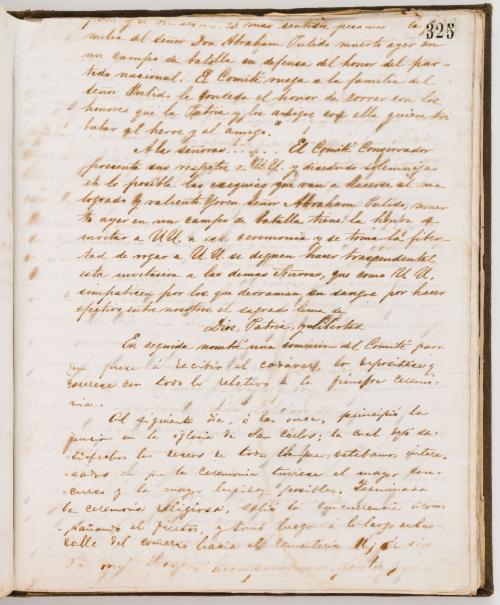 325
milia del señor Don Abraham Pulido muerto ayer en
un campo de batalla en defensa del honor del par-
tido nacional. El Comité ruega a la familia del
señor Pulido le conceda el honor de correr con los
honores que la Patria y los amigos con ella quieren tri
butar al heroe y al amigo."
A las señoras..... El Comité Conservador
presenta sus respetos a U.U. y deseando solemnizar
en lo posible las exequias que van a hacerse al ma
logrado y valiente joven señor Abraham Pulido, muer
to ayer en un campo de batalla tiene la honra de
invitar a U.U. a esa ceremonia y se toma la liber-
tad de rogar a U.U. se dignen hacer trascendental
esta invitacion a las demas señoras, que como U.U.
simpatizan por los que derraman su sangre por hacer
efectivo entre nosotros el sagrado lema de
Dios, Patria y Libertad
En seguida nombró una comision del Comité para
que fuese á recibir el cadáver, lo depositase y
corriese con todo lo relativo á la fúnebre ceremo-
nia.
Al siguiente dia, á las once, principió la
funcion en la iglesia de San Carlos; la cual dejó sa-
tisfechos los deseos de todos los que estabamos intere-
sados en que la ceremonia tuviese el mayor con-
curso y la mayor posible. Terminada
la ceremonia religiosa, salió la concurrencia acom-
pañando el féretro, y tomó luego á lo largo de la
calle del comercio hacia el cementerio.